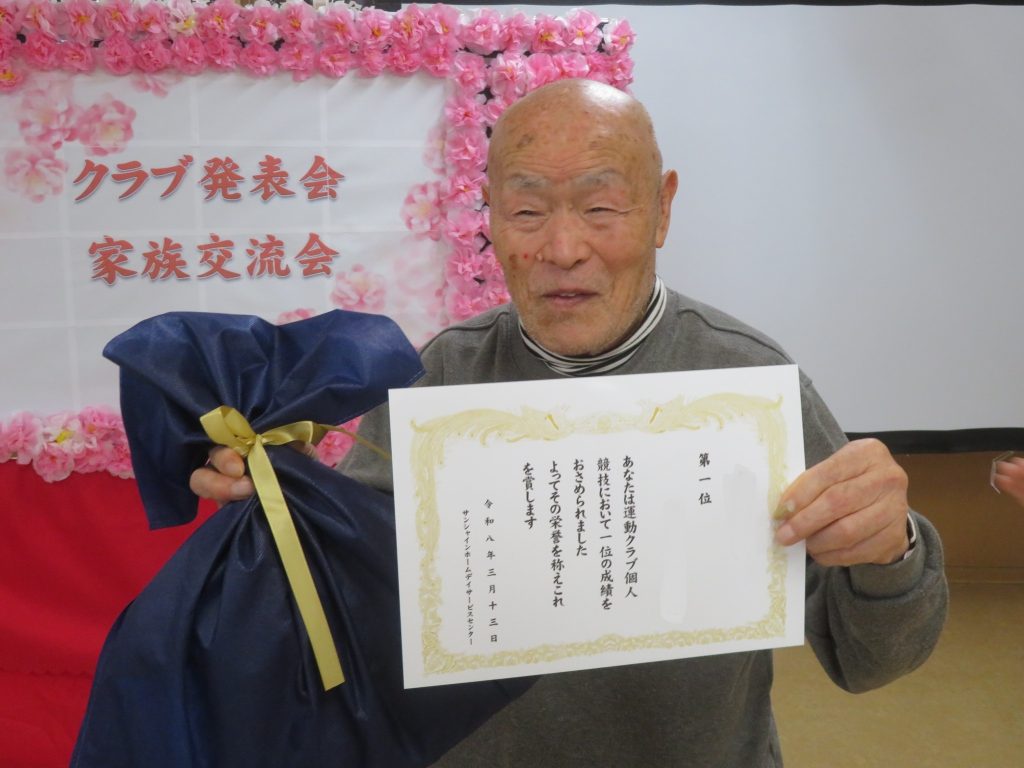 クラブ発表会
家族交流会
第一位
あなたは運動クラブ個人
競技において一位の成績を
おさめられました
よってその栄誉を称えこれ
を賞します
令和八年三月十三日
サンシャインホームデイサービスセンター